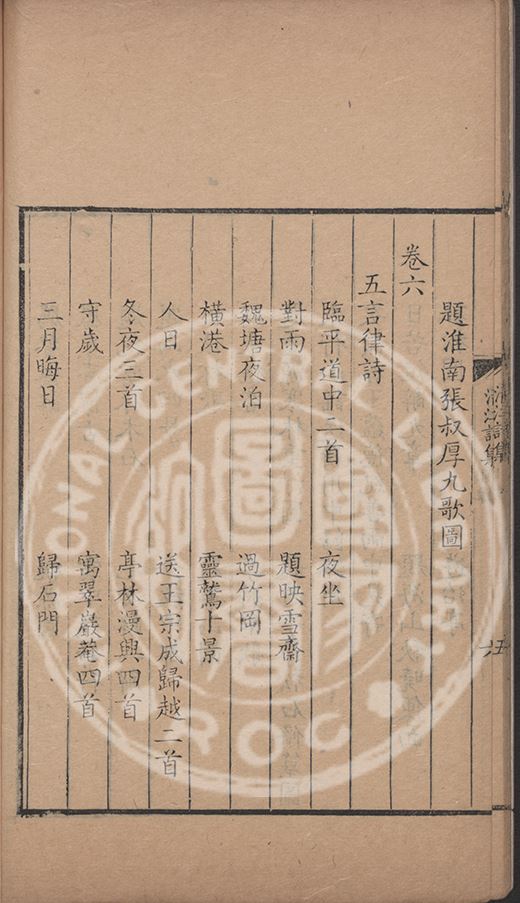 題淮南張叔厚九歌圖
卷六
五言律詩
臨平道中二首 夜坐
對雨 題映雪齋
魏塘夜泊 過竹岡
橫港 靈鷲十景
人日 送王宗成歸越二首
冬夜三首 亭林漫興四首
守歲 寓翠巖菴四首
三月晦日 歸石門
圖
NATIONAL CENTRAL LIBRARY
R.O.C.